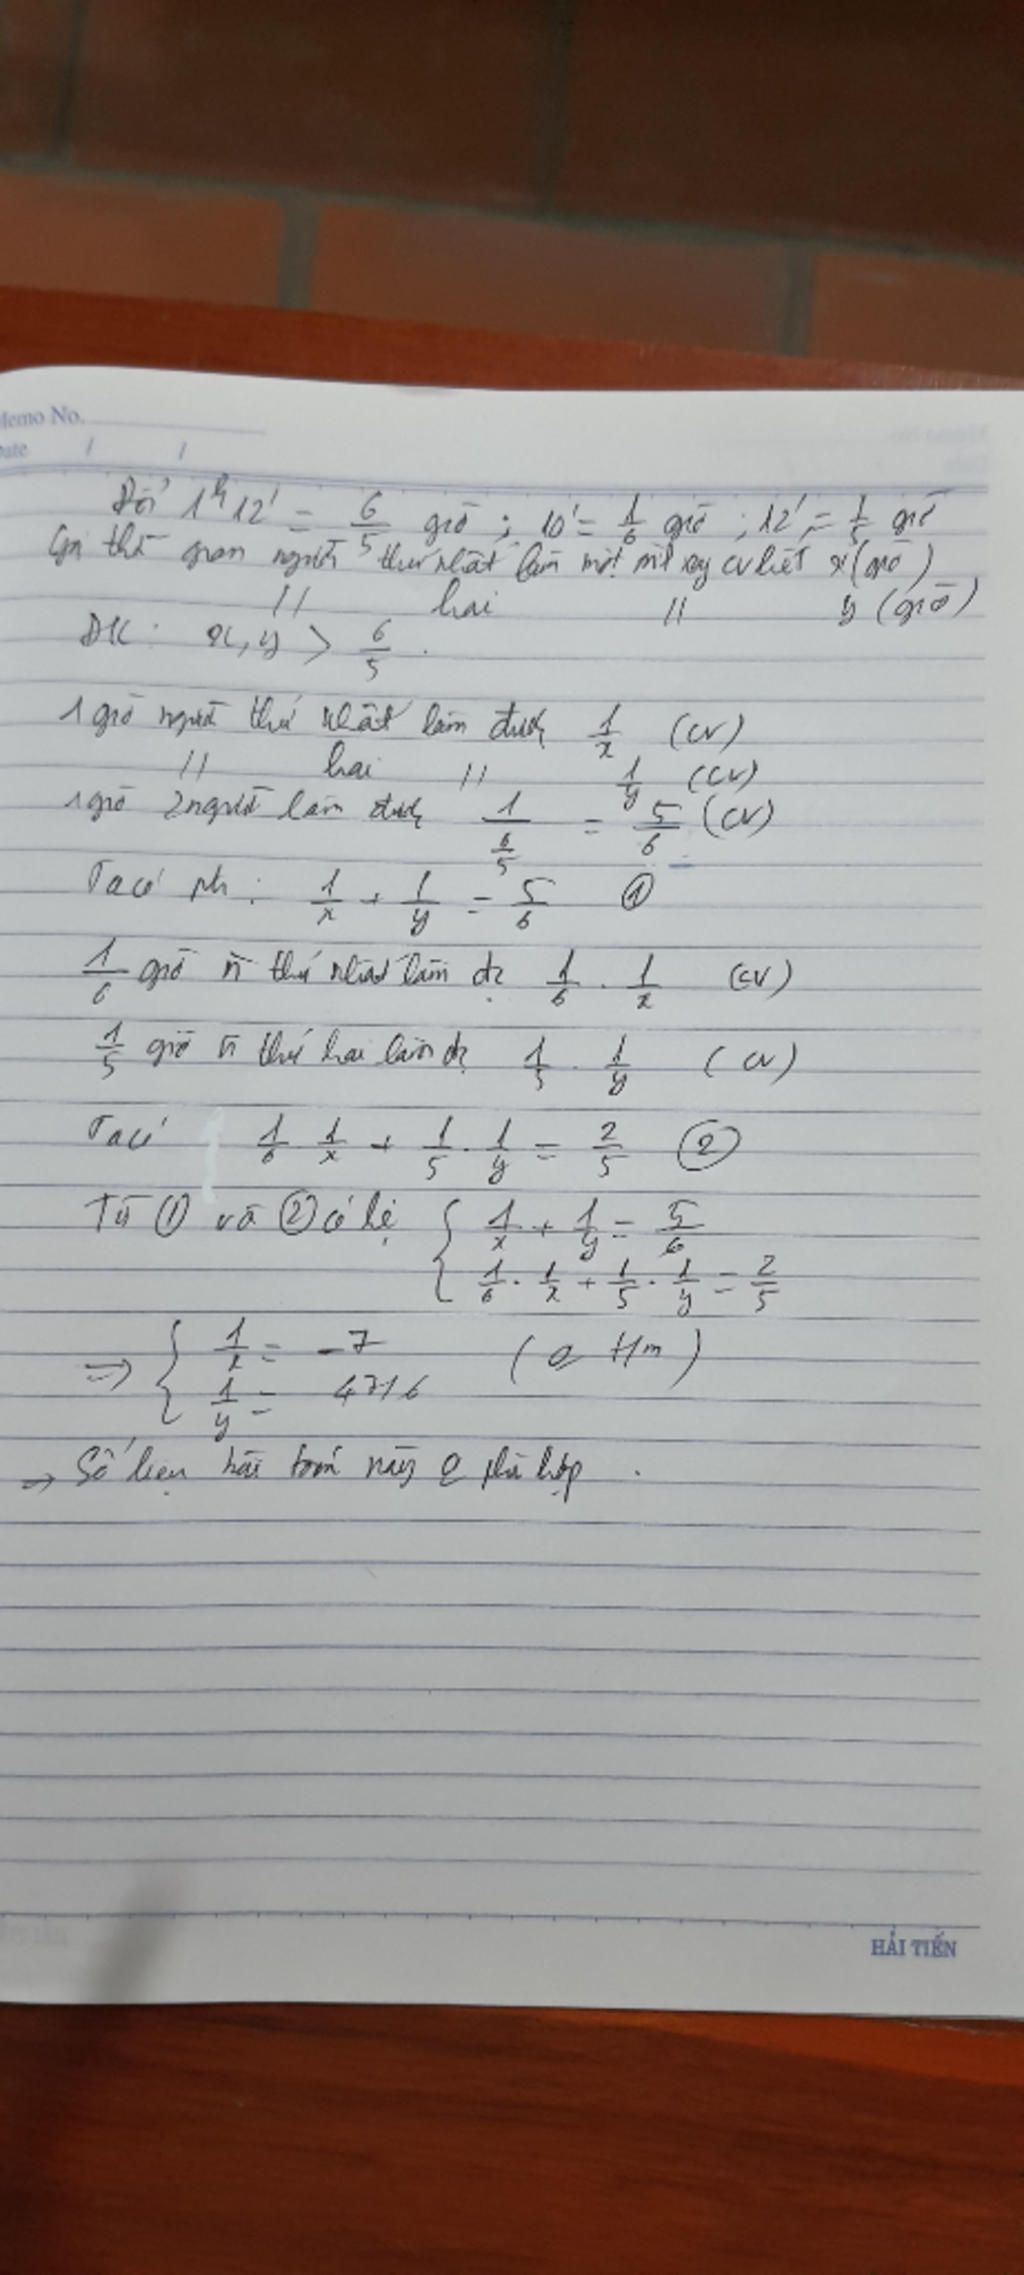 Memo No.
Date / /
Đổi 1h12' = 6/5 giờ ; 10' = 1/6 giờ ; 12' = 1/5 giờ
Gọi thời gian người thứ nhất làm một mình xong cv hết x (giờ)
// hai // y (giờ)
ĐK: x, y > 6/5.
1 giờ người thứ nhất làm được 1/x (cv)
// hai // 1/y (cv)
1 giờ 2 người làm được 1/(6/5) = 5/6 (cv)
Ta có pt: 1/x + 1/y = 5/6 ①
1/6 giờ n thứ nhất làm đc 1/6 . 1/x (cv)
1/5 giờ n thứ hai làm đc 1/5 . 1/y (cv)
Ta có 1/6 . 1/x + 1/5 . 1/y = 2/5 ②
Từ ① và ② có hệ { 1/x + 1/y = 5/6
1/6 . 1/x + 1/5 . 1/y = 2/5
=> { 1/x = -7
1/y = 47/6
=> Số liệu bài toán này phù hợp.
HẢI TIẾN